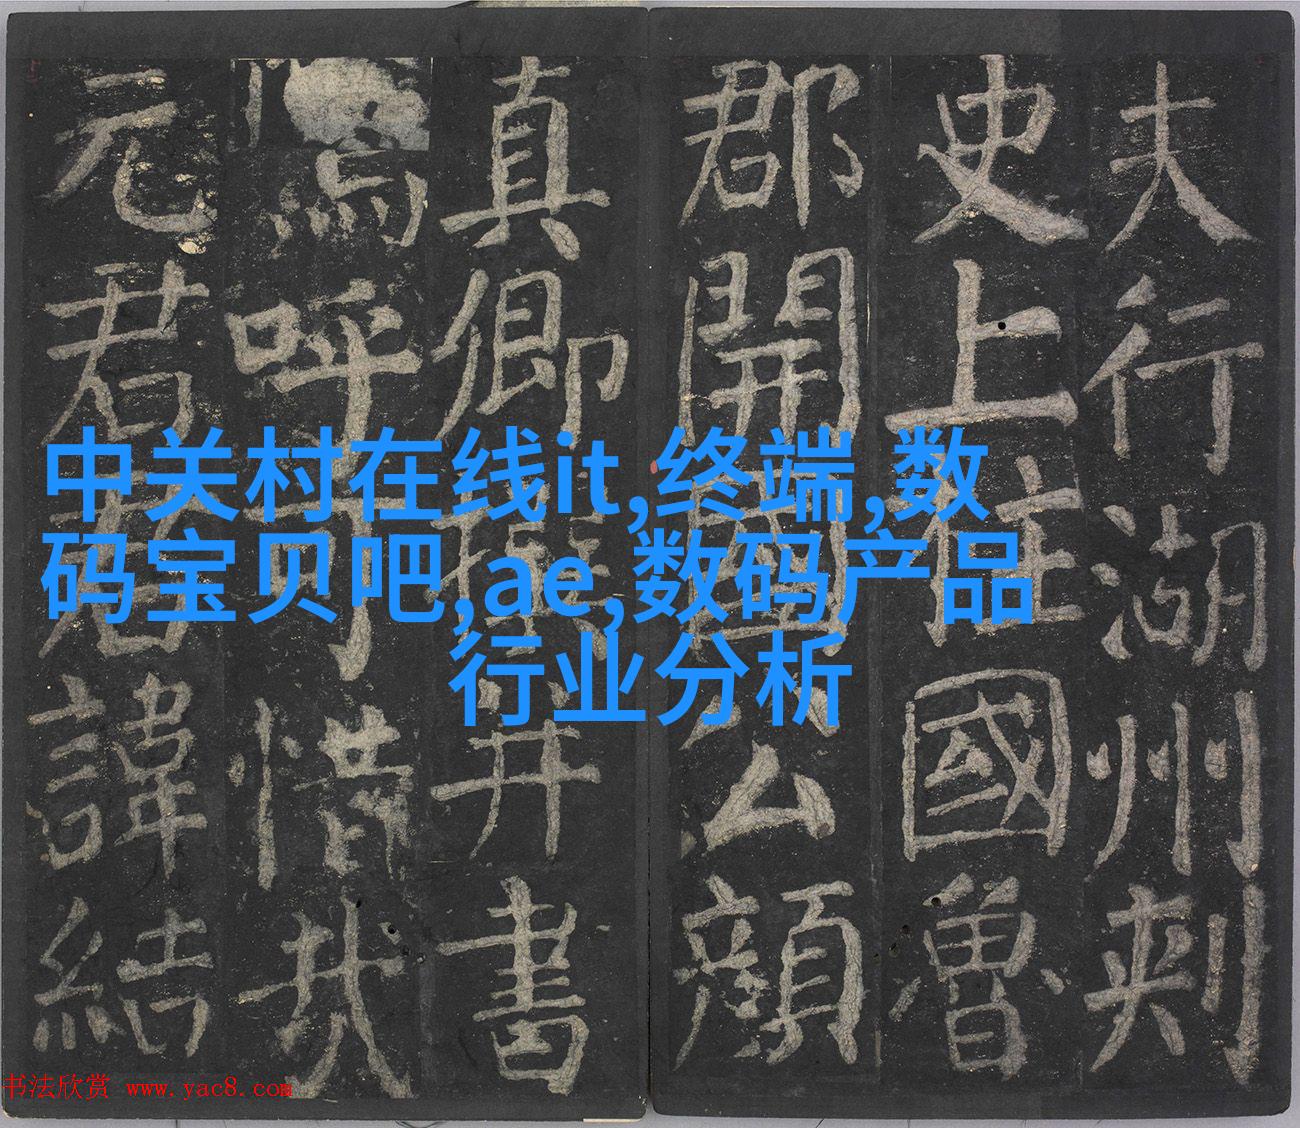 夫行湖州刺
史上柱國魯
郡開國公顏
真卿撰并書
嗚呼可惜哉
元君君諱結
中关村在线it,终端,数
码宝贝吧,ae,数码产品
行业分析
书法欣赏 www.yac8.com